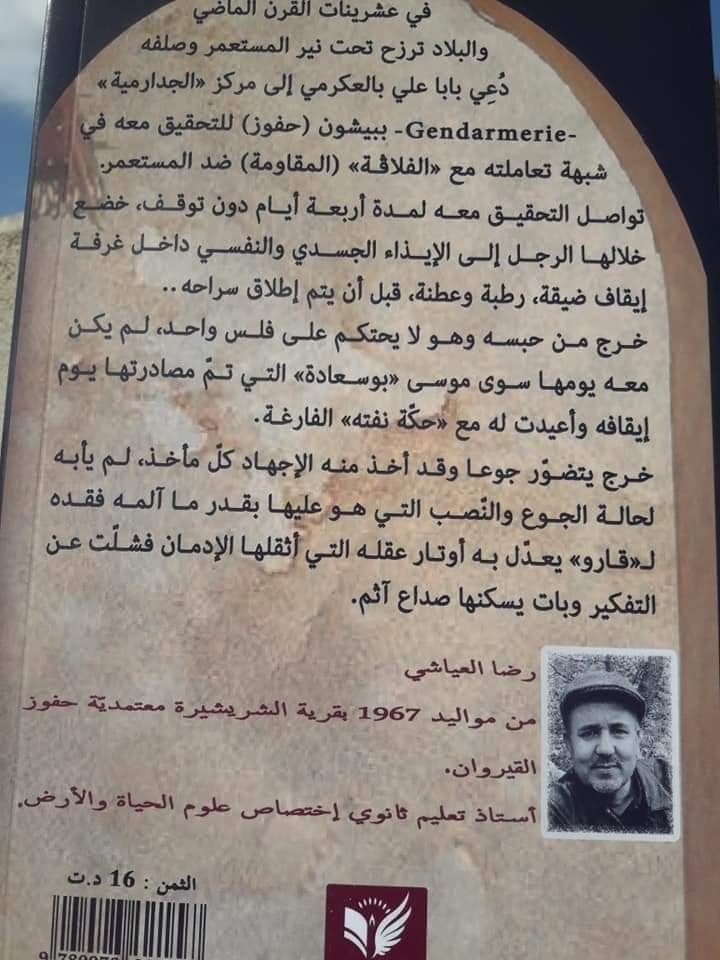 في عشرينات القرن الماضي
والبلاد ترزح تحت نير المستعمر وصلفه
دُعِي بابا علي بالعكرمي إلى مركز «الجدارمية»
-Gendarmerie- ببيشون (حفوز) للتحقيق معه في
شبهة تعاملته مع «الفلاڨة» (المقاومة) ضد المستعمر.
تواصل التحقيق معه لمدة أربعة أيام دون توقف، خضع
خلالها الرجل إلى الإيذاء الجسدي والنفسي داخل غرفة
إيقاف ضيقة، رطبة وعطنة، قبل أن يتم إطلاق سراحه..
خرج من حبسه وهو لا يحتكم على فلس واحد، لم يكن
معه يومها سوى موسى «بوسعادة» التي تمّ مصادرتها يوم
إيقافه وأعيدت له مع «حكّة نفته» الفارغة.
خرج يتضوّر جوعا وقد أخذ منه الإجهاد كلّ مأخذ، لم يأبه
لحالة الجوع والنّصب التي هو عليها بقدر ما آلمه فقده
لـ«قارو» يعدّل به أوتار عقله التي أثقلها الإدمان فشلّت عن
التفكير وبات يسكنها صداع آثم.
رضا العياشي
من مواليد 1967 بقرية الشريشيرة معتمديّة حفوز
القيروان.
أستاذ تعليم ثانوي إختصاص علوم الحياة والأرض.
الثمن : 16 د.ت